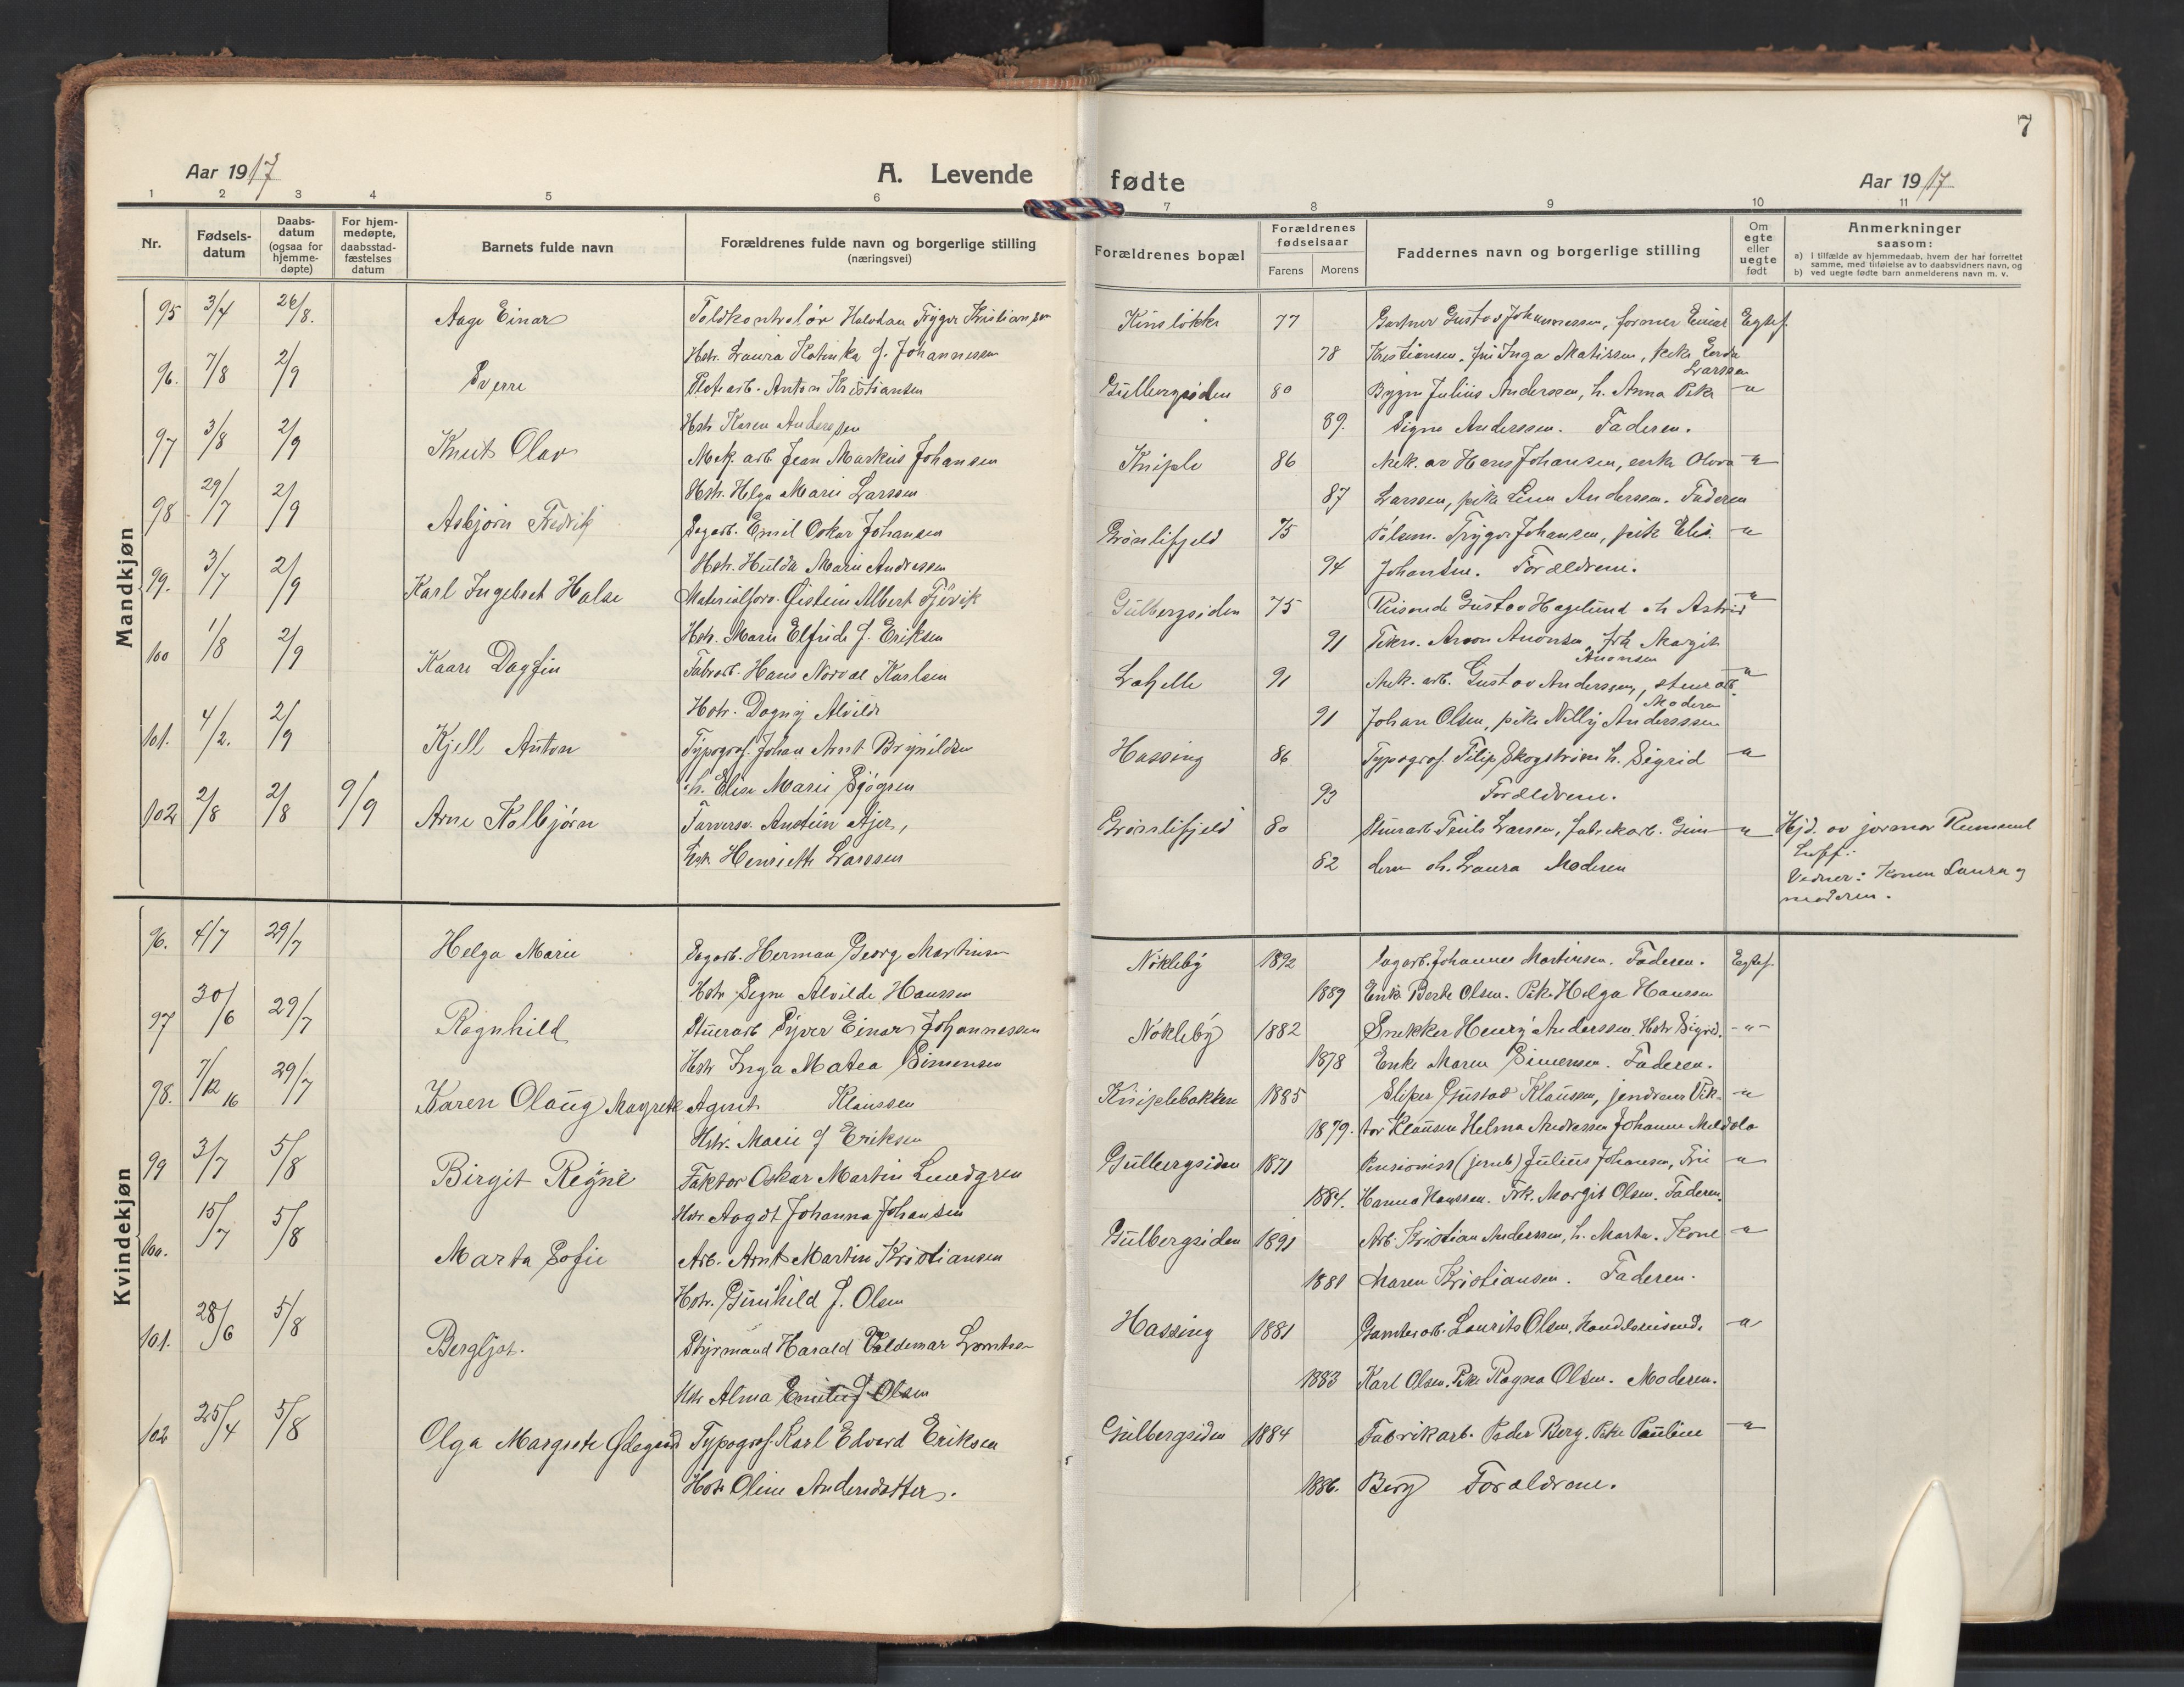 7
Aar 1917
A. Levende
fødte
Aar 1917
1 2 3 4 5 6 7 8 9 10 11
Nr.
Fødsels-
datum
Daabs-
datum
(ogsaa for
hjemme-
døpte)
For hjem-
medøpte,
daabsstad-
fæstelses
datum
Barnets fulde navn
Forældrenes fulde navn og borgerlige stilling
(næringsvei)
Forældrenes bopæl
Forældrenes
fødselsaar
Farens Morens
Faddernes navn og borgerlige stilling
Om
egte
eller
uegte
født
Anmerkninger
saasom:
a) I tilfælde av hjemmedaab, hvem der har forrettet
samme, med tilføielse av to daabsvidners navn, og
b) ved uegte fødte barn anmelderens navn m. v.
Mandkjøn
95 3/4 26/8. Aage Einar Toldkontrolør Halvdan Trygve Kristiansen 77
Hstr. Laura Katinka f. Johannessen 78
Gartner Gustav Johannessen, former Einar Egtef.
Kristiansen, fru Inga Matissen, pike Gerda
Larssen
96. 7/8 2/9 Sverre Anton Kristiansen Gulbergsiden 80 Julius Anderssen, h. Anna Pike -"-
Hstr Karen Anderssen 89. Signe Anderssen. Faderen.
97 3/8 2/9 Knut Olav Mek. arb. Jean Markus Johansen Kniple 86 Mek. ar Hans Johansen, enke -"-
Hstr. Helga Marie Larssen 87 Larssen, pike Anderssen. Faderen
98 29/7 2/9 Asbjørn Fredrik Sagarb. Emil Oskar Johansen Grønlifjeld 75 Trygve Johansen, pike Elis. -"-
Hstr. Hulda Marie Andressen 94 Johansen. Forældrene.
99. 3/7 2/9 Karl Ingebret Halse Materialforv. Øistein Albert Gulbergsiden 75 Reisende Gustav Hagelund Astrid -"-
Hstr. Marie Elfride f. Eriksen 91 Aronsen, frk Margit
Aronsen
100 1/8 2/9 Kaare Dagfin Fabrarb. Hans Norval Karlsen Lahelle 91 Mek. arb. Gustav Anderssen, stuerarb. -"-
Moderen
Hstr. Dagny Alvilde 91 Johan Olsen, pike Nelly Anderssen
101. 4/2. 2/9 Kjell Anton Typograf. Johan Arnt Brynildsen Hassing 86 Typograf. Filip Skogstrøm h. Sigrid -"-
h. Elise Marie Sjøgren 93 Forældrene.
102 2/8 2/8 9/9 Arne Kolbjørn Farversv. Anstein Ajer, Grønlifjeld 80 Stuerarb Larsen, fabrikarb. -"- Hjd. av jormor
Hstr Henriette Larssen 82 Laura Moderen
Vidner: Konen Laura og
moderen.
Kvindekjøn
96. 4/7 29/7 Helga Marie Sagarb. Herman Georg Martinsen Nøkleby 1892 Sagarb. Johannes Martinsen. Faderen. Egtef
Hstr Signe Alvilde Hanssen 1889 Enke Berte Olsen. Pike Helga Hanssen
97 30/6 29/7 Ragnhild Stuerarb Syver Einar Johannessen Nøkleby 1882 Snekker Henry Anderssen. Hstr Sigrid. -"-
Hstr Inga Matea Simensen 1878 Enke Maren Simensen. Faderen.
98. 7/12 16 29/7 Karen Olaug Magrete Agent Klaussen Kniplebakken 1885 Sliper Gustav Klaussen, -"-
Hstr. Marie f Eriksen 1879. Klausen Helma Andressen Johanne
99 3/7 5/8 Birgit Faktor Oskar Martin Lundgren Gulbergsiden 1871 Pensionist (jernb) Julius Johansen, Fru -"-
Hstr Johanna Johansen 1884. Hanna Hanssen. Frk. Margit Olsen. Faderen.
100. 15/7 5/8 Marta Sofie Arb. Arnt Martin Kristiansen Gulbergsiden 1891 Arb. Kristian Anderssen, h. Marta. Kone -"-
Hstr. Gunhild f. Olsen 1881 Maren Kristiansen. Faderen.
101. 28/6 5/8 Bergljot. Styrmand Harald Valdemar Hassing 1881 Laurits Olsen, Handelsreisend. -"-
Hstr Alma Emilie f Olsen 1883 Karl Olsen. Pike Ragna Olsen. Moderen.
102 25/4 5/8 Olga Margrete Ødegaard Typograf. Karl Edvard Eriksen Gulbergsiden 1884 Fabrikarb. Peder Berg. Pike Pauline -"-
Hstr Oline Andersdatter. 1886. Berg Forældrene.